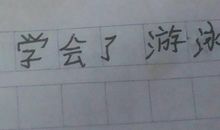 学会了游泳